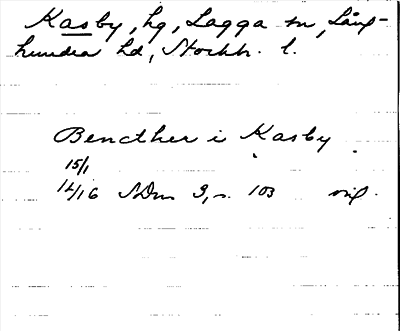 Kasby, hg, Lagga sn, Lång-
hundra hd, Stockh. l.
Bendther i Kasby
15/1
1416 SDns 3, s. 103 orig.